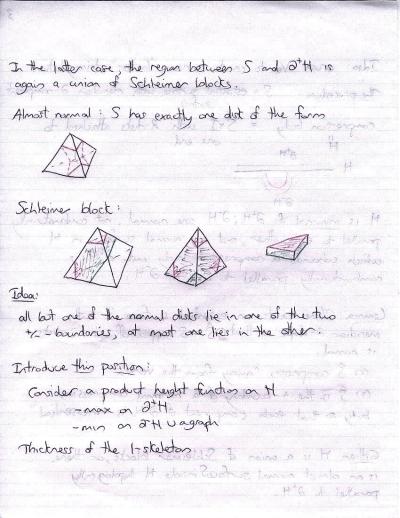 In the latter case, the region between S and ∂⁺H is
again a union of Schleimer blocks.
Almost normal : S has exactly one disk of the form
Schleimer block :
Idea:
all but one of the normal disks lie in one of the two
+/- - boundaries, at most one lies in the other.
Introduce thin position :
Consider a product height function on H
- max on ∂⁺H
- min on ∂⁻H ∪ a graph
Thickness of the 1-skeleton